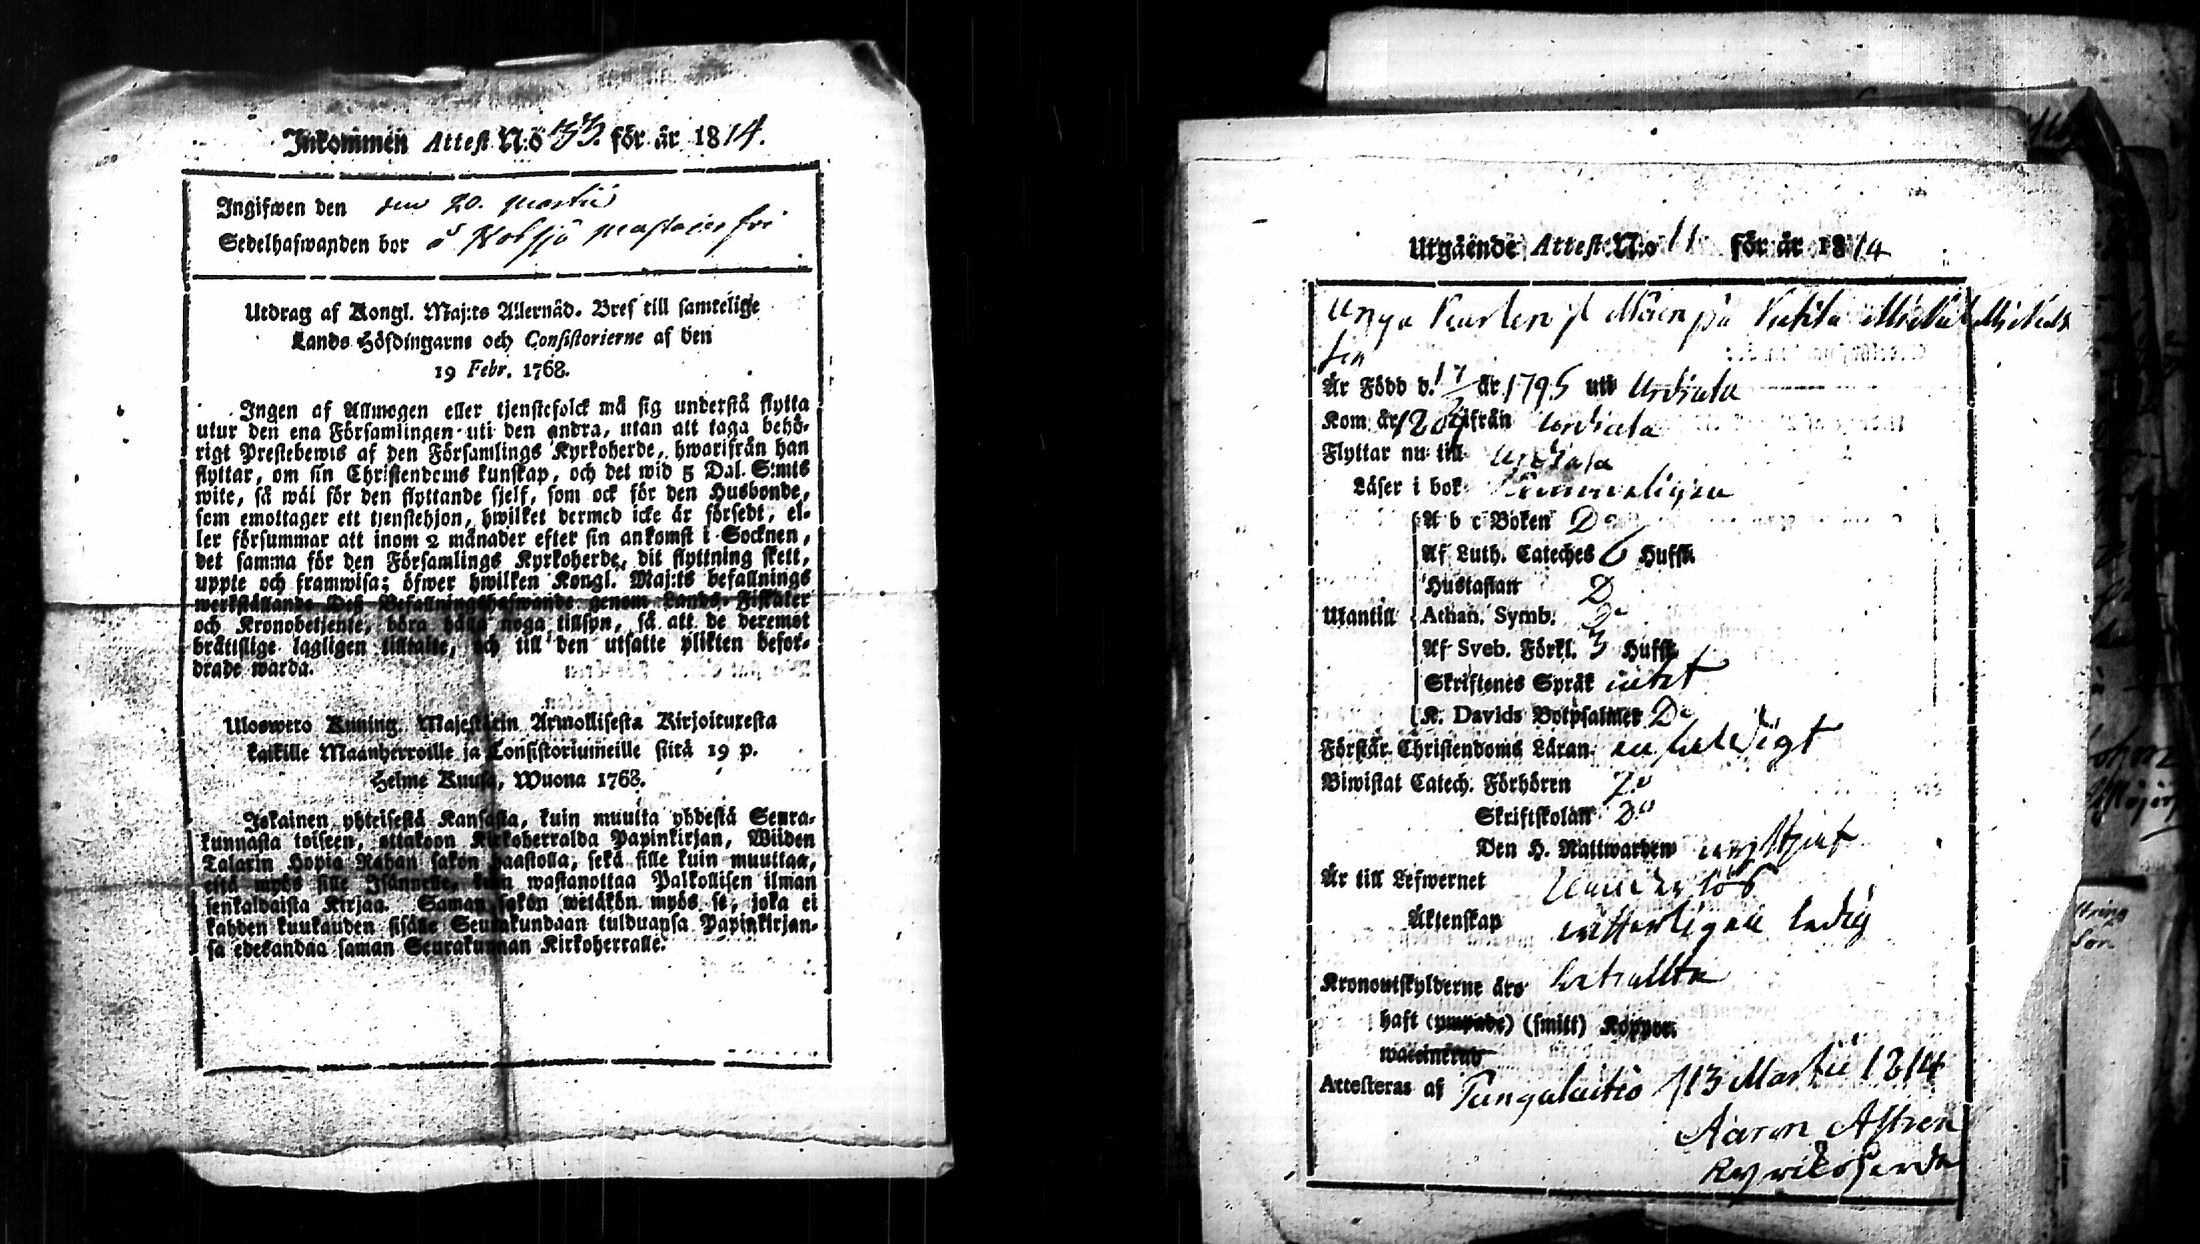 Inkommen Attest N:o 33. för år 1814.
Ingifwen den den 20. Martii
Sedelhafwanden bor
Utdrag af Kongl. Maj:ts Allernåd. Bref till samtelige
Lands Höfdingarne och Consistorierne af den
19 Febr. 1768.
Ingen af Allmogen eller tjenstefolck må sig understå flytta
utur den ena Församlingen uti den andra, utan att taga behö-
rigt Prestebewis af den Församlings Kyrkoherde, hwarifrån han
flyttar, om sin Christendoms kunskap, och det wid 5 Dal. S:mts
wite, så wäl för den flyttande sjelf, som ock för den Husbonde,
som emottager ett tjenstehjon, hwilket dermed icke är försedt, el-
ler försummar att inom 2 månader efter sin ankomst i Socknen,
det samma för den Församlings Kyrkoherde, dit flyttning skett,
uppte och framwisa; öfwer hwilken Kongl. Maj:ts befallnings
werkställande Deß Befallningshafwande genom Lands-Fiskaler
och Kronobetjente, böra hålla noga tillsyn, så att de deremot
brätislige lagligen tilltalte, och till den utsatte plikten befor-
drade warda.
Uloswetο Kuning. Majestätin Armollisesta Kirjoituxesta
kaikille Maanherroille ja Consistoriumeille siitä 19 p.
Helme Kuusa, Wuona 1768.
Jokainen yhteisestä Kansasta, kuin muutta yhdestä Seura-
kunnasta toiseen, ottakoon Kirkoherralda Papinkirjan, Wiiden
Talarin Hopia Rahan sakon haastolla, sekä sille kuin muuttaa,
että myös sille Isännelle, kuin wastanottaa Palkollisen ilman
senkaldaista Kirjaa. Saman sakon wetäkön myös se, joka ei
kahden kuukauden sisälle Seurakundaan tulduansa Papinkirjan-
sa edeskandaa saman Seurakunnan Kirkoherralle.
Utgående Attest N:o 11 för år 1814
Unga Karlen
Är Född d. 17 år 1795 uti Urdiala
Kom år ifrån Urdiala
Flyttar nu till Urdiala
Läser i bok
A b c Boken Do
Af Luth. Cateches 6 Hufst.
Hustaflan D
Utantill Athan. Symb. Do
Af Sveb. Förkl. 3 Hufst.
Skriftenes Språk intet
K. Davids Botpsalmer Do
Förstår Christendoms Läran
Biwistat Catech. Förhören
Skriftskolan Do
Den H. Nattwarden
Är till Lefwernet
Äktenskap witterligen ledig
Kronoutskylderne äro betallta
haft (ympade) (smitt) Koppor.
waccinerad
Attesteras af Tungalaitio d 13 Martii 1814
Aaron Astren
Kyrkoherde